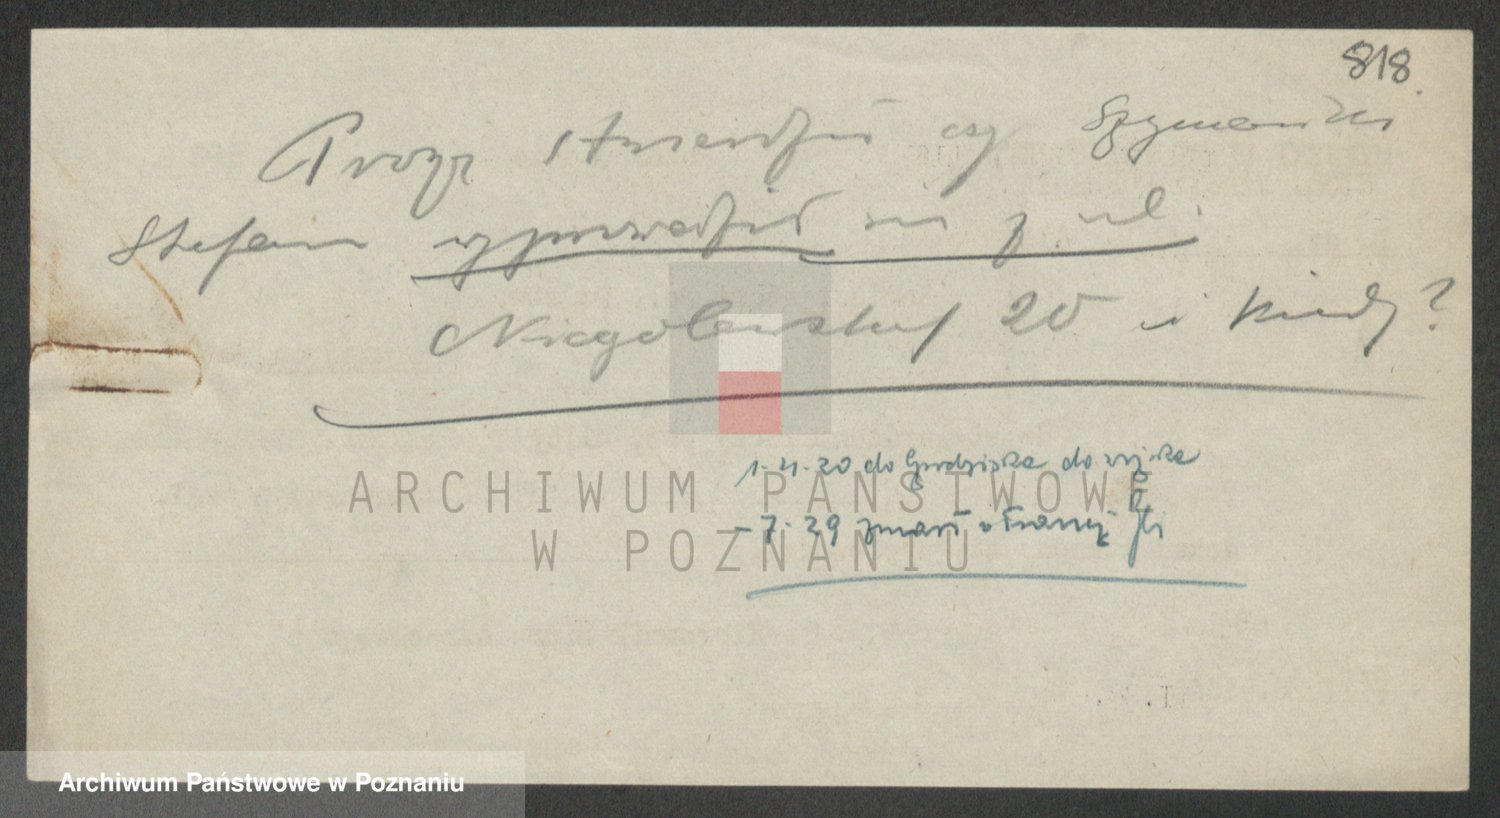 818
Proszę stwierdzić czy Szymański
Stefan wyprowadził się z ul.
Niegolewskich 20 i kiedy?
ARCHIWUM PAŃSTWOWE
W POZNANIU
do Grodziska do wojska
29 zmarł w Francji
Archiwum Państwowe w Poznaniu